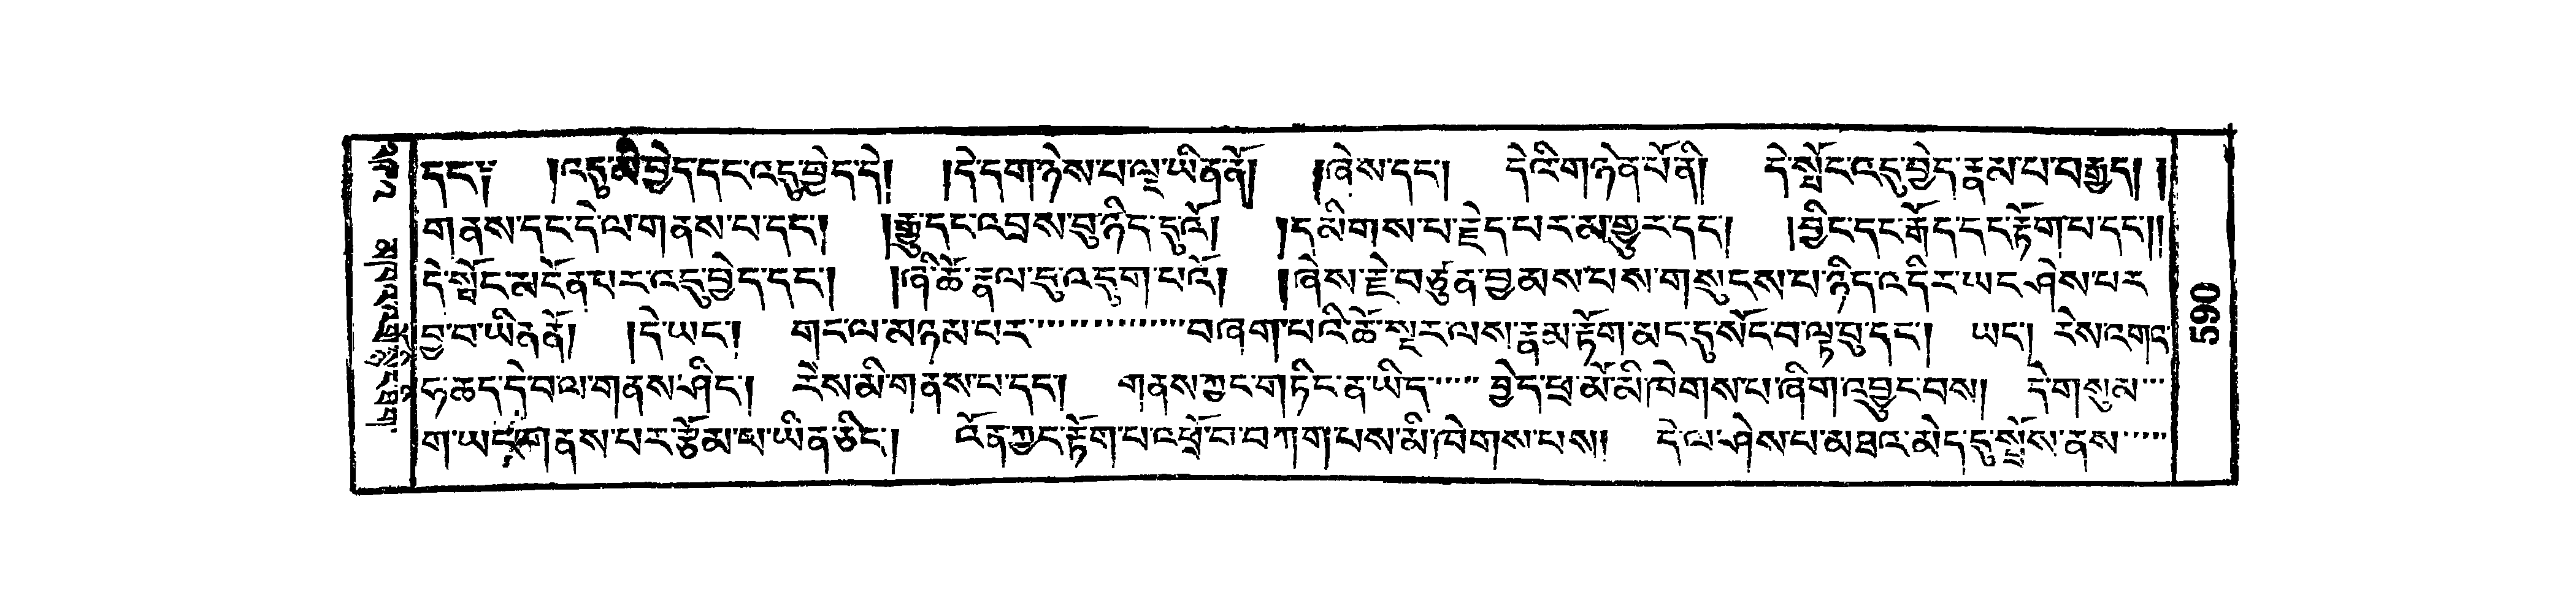 དང༌། །འདུ་མི་བྱེད་དང་འདུ་བྱེད་དེ། །དེ་དག་ཉེས་པ་ལྔ་ཡིན་ནོ། །ཞེས་དང་། དེའི་གཉེན་པོ་ནི། དེ་སྤོང་འདུ་བྱེད་རྣམ་པ་བརྒྱད། །
གནས་དང་དེ་ལ་གནས་པ་དང་། །རྒྱུ་དང་འབྲས་བུ་ཉིད་དུའོ། །དམིགས་པ་རྗེད་པར་མ་གྱུར་དང་། །བྱིང་དང་རྒོད་དང་རྟོག་པ་དང་།།
དེ་སྤོང་མངོན་པར་འདུ་བྱེད་དང་། །ཞི་ཚེ་རྣལ་དུ་འདུག་པའོ། །ཞེས་རྗེ་བཙུན་བྱམས་པས་གསུངས་པ་ཉིད་འདིར་ཡང་ཤེས་པར
བྱ་བ་ཡིན་ནོ། །དེ་ཡང་། གང་ལ་མཉམ་པར་བཞག་པའི་ཚེ་སྔར་ལས་རྣམ་རྟོག་མང་དུ་སོང་བ་ལྟ་བུ་དང་། ཡང་། རེས་འགའ་
ཧ་ཆད་དེ་བ་ལ་གནས་ཤིང་། རེས་མི་གནས་པ་དང་། གནས་ཀྱང་གཏིང་ན་ཡིད་བྱེད་ཕྲ་མོ་མི་ཁེགས་པ་ཞིག་འབྱུང་བས། དེ་གསུམ
ག་ཡང་གནས་པར་རྩོམ་པ་ཡིན་ཅིང་། འོན་ཀྱང་རྟོག་པ་འཕྲོ་བ་བཀག་པས་མི་ཁེགས་པས། དེ་ལ་ཤེས་པ་མཐའ་མེད་དུ་སྤྲོས་ནས